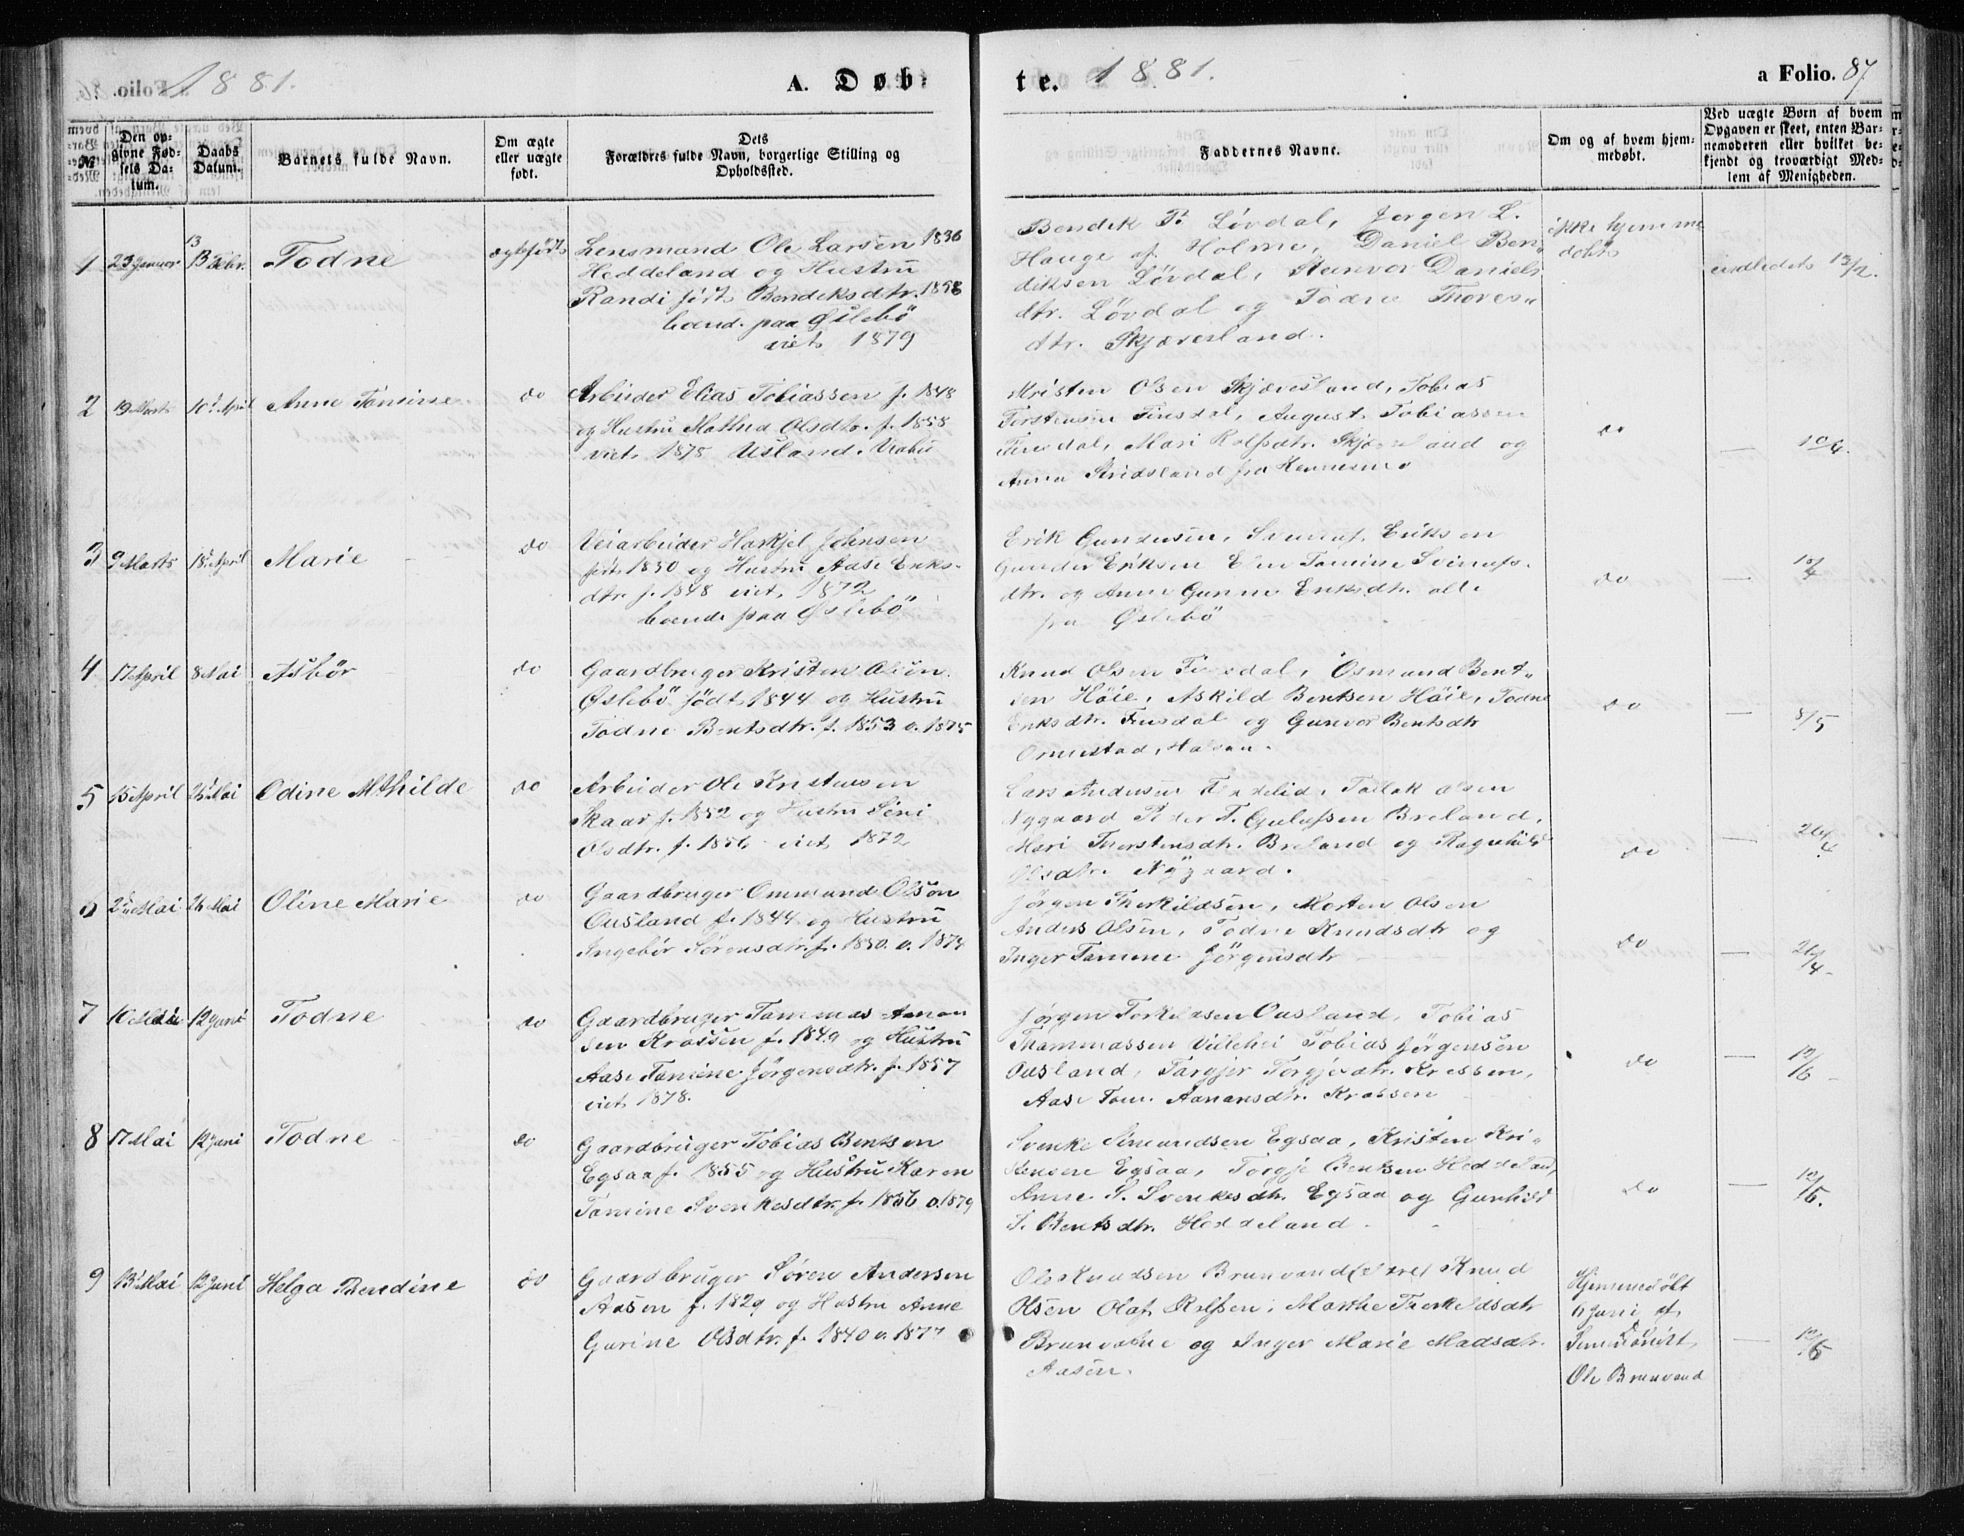 1881.
A. Døb-
te. 1881.
a Folio. 87
№
Den op-
givne Fød-
sels Da-
tum.
Daabs
Datum.
Barnets fulde Navn.
Om ægte
eller uægte
født.
Dets
Forældres fulde Navn, borgerlige Stilling og
Opholdssted.
Faddernes Navne.
Om og af hvem hjem-
medøbt.
Ved uægte Børn af hvem
Opgaven er skeet, enten Bar-
nemoderen eller hvilket be-
kjendt og troværdigt Med-
lem af Menigheden.
1 23 Januar 13 Febr. Todne ægtefødt
Lensmand Ole Larsen 1836
Heddeland og Hustru
Randi født Bendeksdtr. 1858
boend. paa Øslebö
viet 1879
Bendek P. Lövdal, Jørgen L.
Hauge af Holme, Daniel Ben-
diksen Lövdal, Daniels
dtr. Lövdal og Todne Thores-
dtr. Skjævesland.
ikke hjemme
døbt
indledet 13/2.
2 19 Marts 10 April Anne Tomine do
Arbeider Elias Tobiassen f. 1848
og Hustru Olsdtr. f. 1858
viet 1878 Usland.
Kristen Olsen Skjævesland, Tobias
Torstensen Finsdal, August Tobiassen
Finsdal, Mari Rolfsdtr. og
Anna
do
— 10/4.
3 9 Marts 18 April Marie do
Veiarbeider Johnsen
født 1850 og Hustru Aase Eriks-
dtr. f. 1848 viet 1872
boende paa Øslebö
Erik Gundersen, Eriksen
Gunder Eriksen Tomine
dtr. og Anne Gunne Eriksdtr. alle
fra Øslebö
do
—
4 17 April 8 Mai Asbör do
Gaardbruger Kristen Olsen
Øslebö født 1844 og Hustru
Todne Bentsdtr. f. 1853 v. 1875
Knud Olsen Finsdal, Osmund Bent-
sen Höie, Askild Bentsen Höie, Todne
Eriksdtr. Finsdal og Gunvor Bentsdtr
do
— 8/5
5 15 April 26 Mai Odine Mthilde do
Arbeider Ole Kristensen
Skaar f. 1852 og Hustru
Olsdtr. f. 1856 viet 1872
Lars Andersen Tallak Olsen
Nygaard Peder T. Breland,
Mari Thorstensdtr. Breland og Ragnhild
Olsdtr. Nygaard.
do
— 26/4
6 2 Mai 26 Mai Oline Marie do
Gaardbruger Ommund Olsen
Ousland f. 1844 og Hustru
Ingebör Sørensdtr. f. 1850. v. 1874
Jørgen Therkildsen, Morten Olsen
Anders Olsen, Todne Knudsdtr og
Inger Tomine Jörgensdtr
do
— 26/4
7 10 Mai 12 Juni Todne do
Gaardbruger Tommas Aanon
sen Krossen f. 1849 og Hustru
Aase Tomine Jørgensdtr. f. 1857
viet 1878.
Jørgen Torkildsen Ousland, Tobias
Thommassen Tobias Jørgensen
Ousland, Torgjer Krossen,
Aase Tom. Aanonsdtr. Krossen
do
— 12/6
8 17 Mai 12 Juni Todne do
Gaardbruger Tobias Bentsen
Egsaa f. 1855 og Hustru Karen
Tomine Svenkesdtr. f. 1856 v. 1879
Svenke Simundsen Egsaa, Kristen Kri-
stensen Egsaa, Torgje Bentsen Heddeland,
Anne S. Svenkesdtr. Egsaa og Gunhild
T. Bentsdtr. Heddeland.
do
— 12/6.
9 13 Mai 12 Juni Helga Bendine do
Gaardbruger Søren Andersen
Aasen f. 1829 og Hustru Anne
Gurine Olsdtr. f. 1840 v. 1877
Ole Knudsen Brunvand Knud
Olsen Olaf Rolfsen, Marthe Therkildsdtr
Brunvatne og Inger Marie Madsdtr.
Aasen.
Hjemmedøbt
6 Juni af
Ole Brunvand
— 12/6